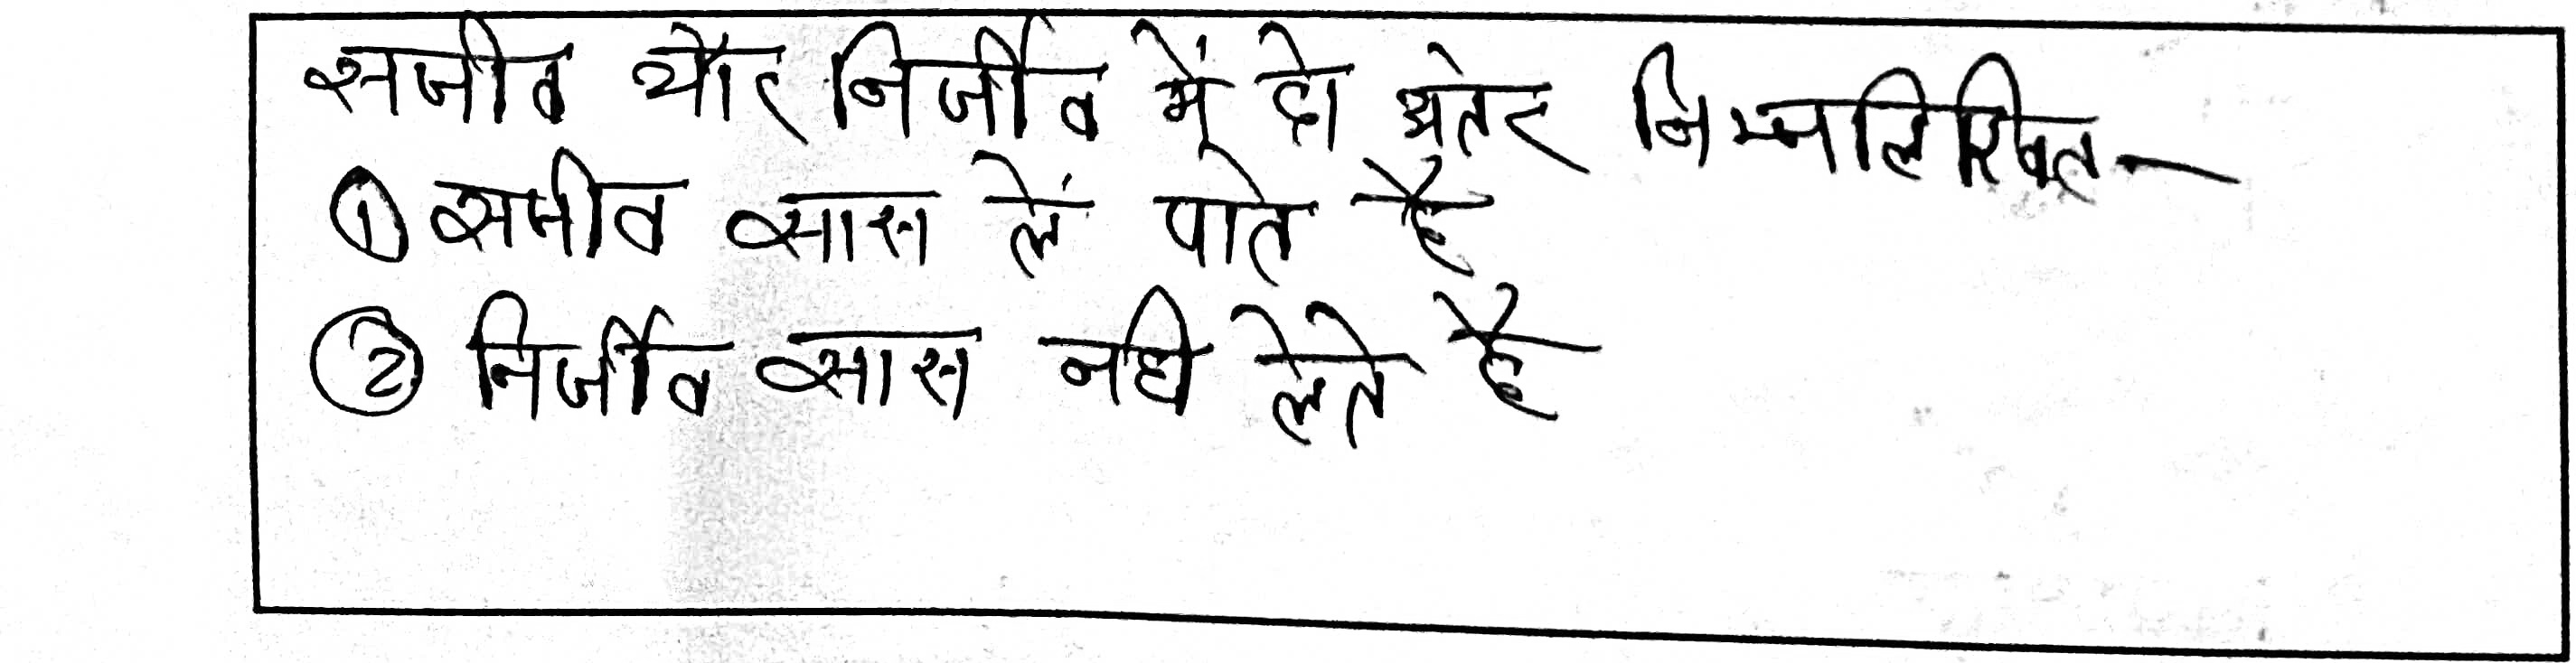 सजीव और निर्जीव में दो अंतर निम्नलिखित -
① सजीव सास लें पाते है
② निर्जीव सास नही लेते है